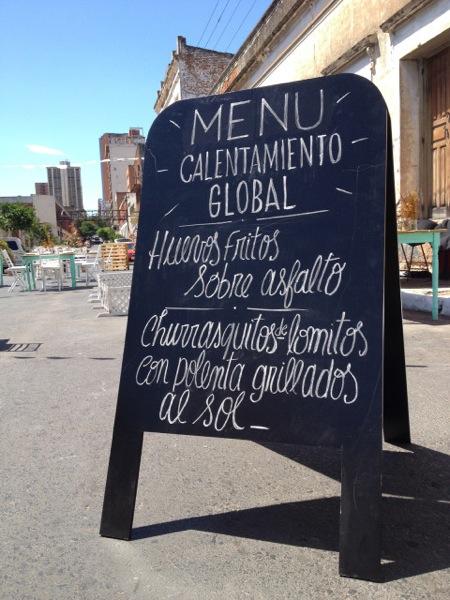 MENU
CALENTAMIENTO
GLOBAL
Huevos fritos
sobre asfalto
Churrasquitos de lomitos
con polenta grillados
al sol_